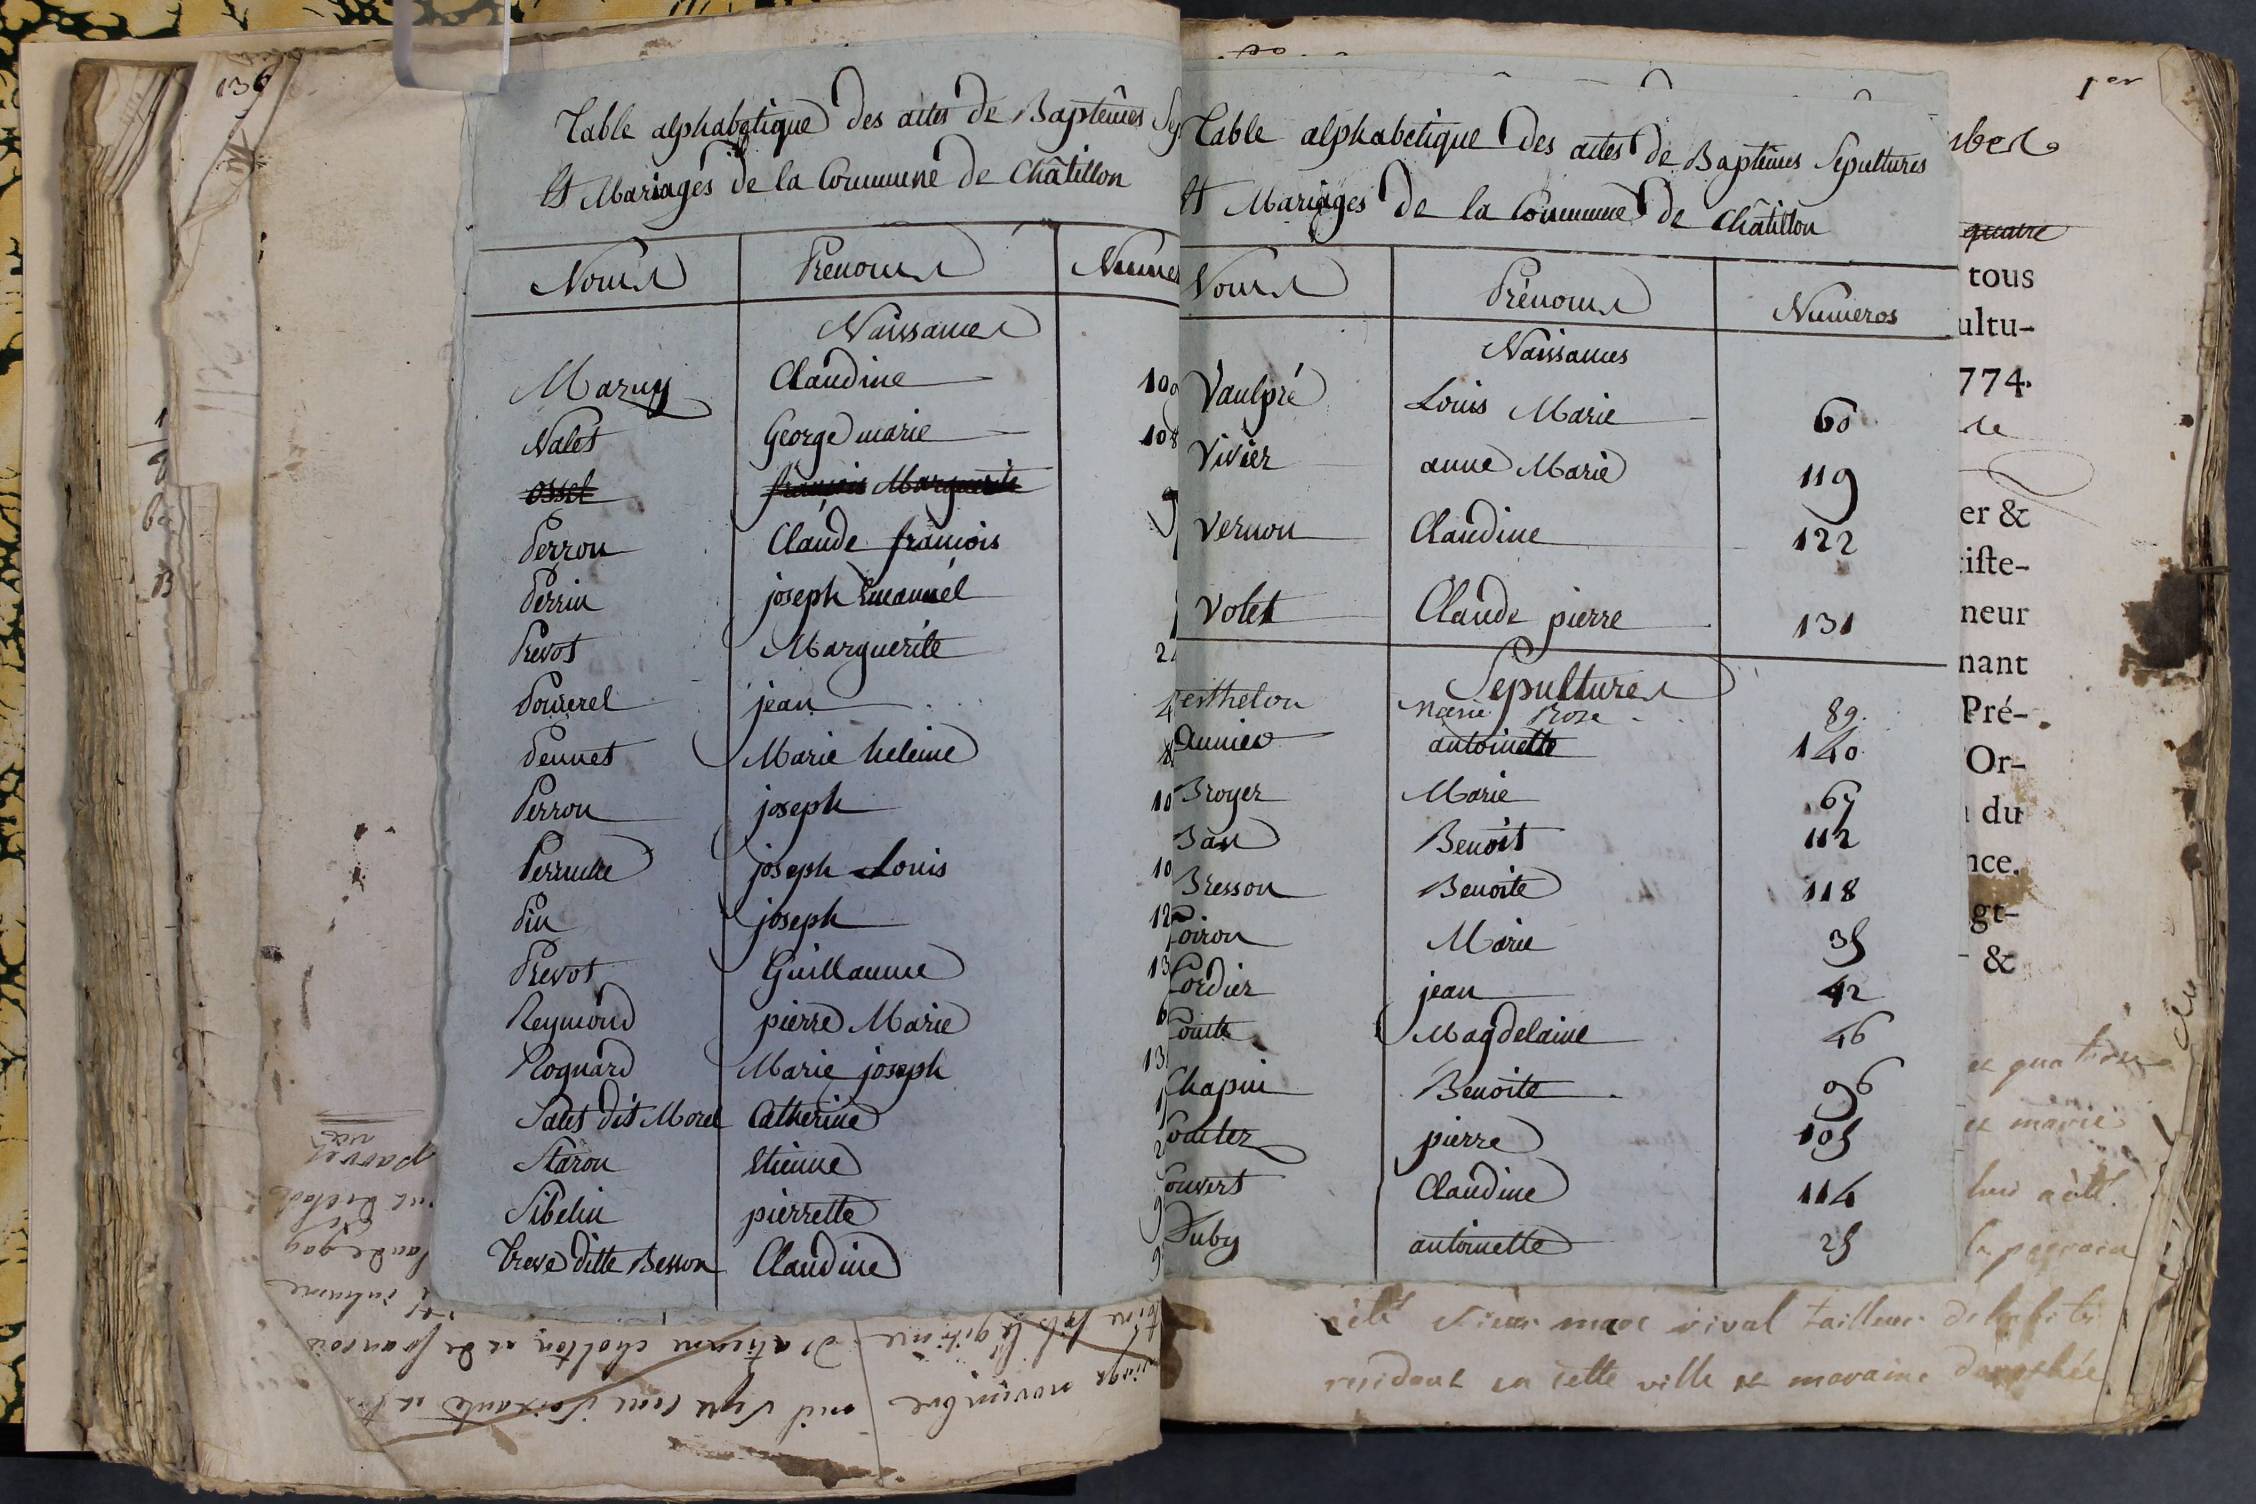 136
Table alphabetique des actes de Baptêmes Sep
Et Mariages de la Commune de Châtillon
Noms Prenoms Numer
Naissances
Maruy Claudine 109
Nalet George marie 108
Ossel françois Marguerite 9
Perron Claude francois
Perrin joseph Emanuél
Prevot Marguerite 2
jean 4
Pennet Marie heleine 8
Perron joseph 10
Perruche joseph Louis 10
Pin joseph 12
Prevot Guillaume 13
Reymond pierre Marie 6
Rognard Marie joseph 13
Sales dit Morel Catherine
Staron Etienne 2
Sibelin pierrette 9
Treve ditte Besson Claudine 9
Table alphabetique des actes de Baptêmes Sepultures
Et Mariages de la Commune de Châtillon
Noms Prénoms Numeros
Naissances
Vaulpré Louis Marie 60
Vivier anne Marie 119
Vernon Claudine 122
Volet Claude pierre 131
Sepultures
erthelon Marie Rose 89.
antoinette 140
Broyer Marie 67
Bas Benoit 112
Bresson Benoite 118
Coiron Marie 35
Cordier jean 42
Comte Magdelaine 46
Chapui Benoite 96
pierre 105
Couvert Claudine 114
Duby antoinette 25
1er
quatre
tous
ultu-
774.
de
er &
iste-
neur
nant
Pré-
Or-
du
nce.
gt-
&
et marie
tailleur
resident en cette ville et maraine
novembre mil sept cent soixante et
fils légitime d'